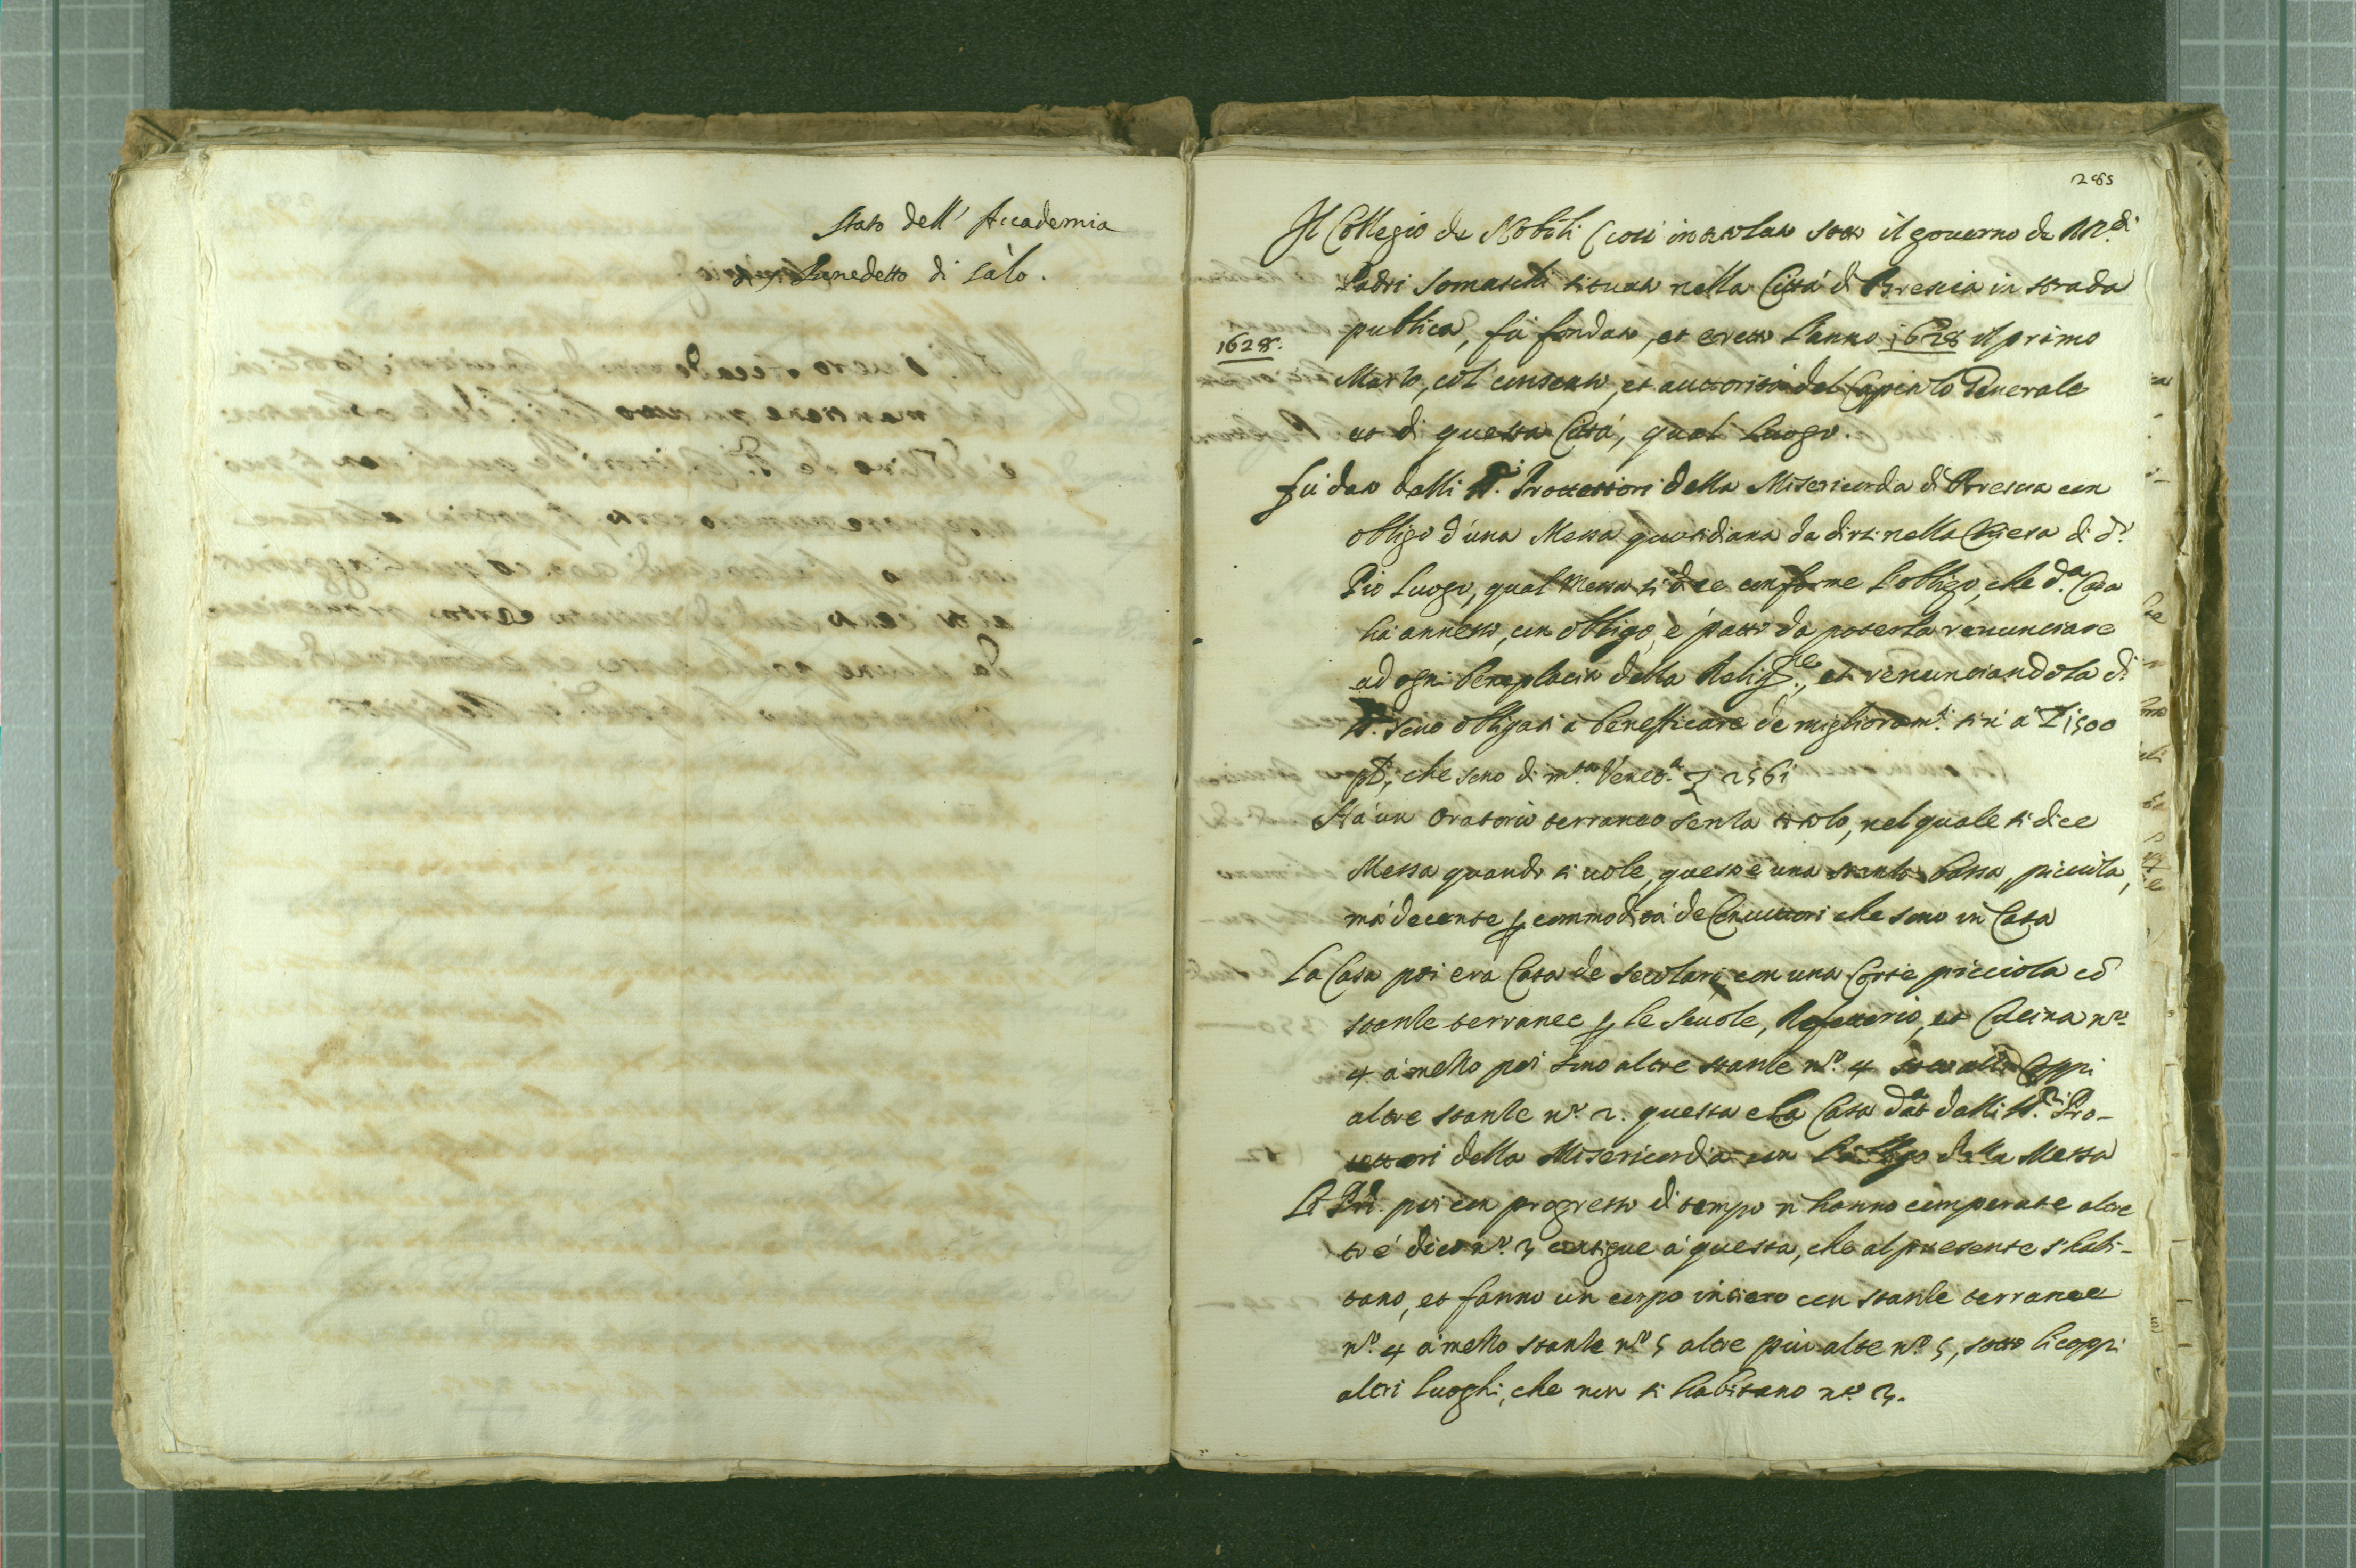 Stato dell' Accademia
di S. Benedetto di Salò.
285
Il Collegio de Nobili (così intitolato sotto il governo de RR.di
Padri Somaschi situato nella Città di Brescia in strada
publica, fù fondato, et eretto l'anno 1628 il primo
1628.
Marzo, col consenso, et auttorità del Capitolo Generale
et di questa Città, qual Luogo.
fù dato dalli SS.ri Protettori della Misericordia di Brescia con
obligo d'una Messa quotidiana da dirsi nella Chiesa di d.o
Pio Luogo, qual Messa si dice conforme l'obligo, che d.a Casa
hà annesso, con obligo, e patto da poterla renunciare
ad ogni beneplacito della Relig.ne, et renunciandola di
SS. sono obligati a benefficare de miglioram.ti sin a £ 1500
pt, che sono di m.ta Venet.a £ 2561
Hà un Oratorio terraneo senza titolo, nel quale si dice
Messa quando si vole, questo è una stanza bassa, picciola,
mà decente p commodità de Convittori che sono in Casa
La Casa poi era Casa de secolari, con una Corte picciola cõ
stanze terranee p le scuole, Refettorio, et Cucina n.o
4 à mezzo poi sono altre stanze n.o 4 sotto alli Coppi
altre stanze n.o 2. questa e la Casa data dalli SS.ri Pro-
tettori della Misericordia con l'obligo della Messa
Li Pri. poi con progresso di tempo n hanno comperate altre
trè dico n.o 3 contigue à questa, che al presente s'habi-
tano, et fanno un corpo intiero con stanze terranee
n.o 4 à mezzo stanze n.o 5 altre più alte n.o 5, sotto li coppi
altri luoghi, che non si habitano n.o 3.